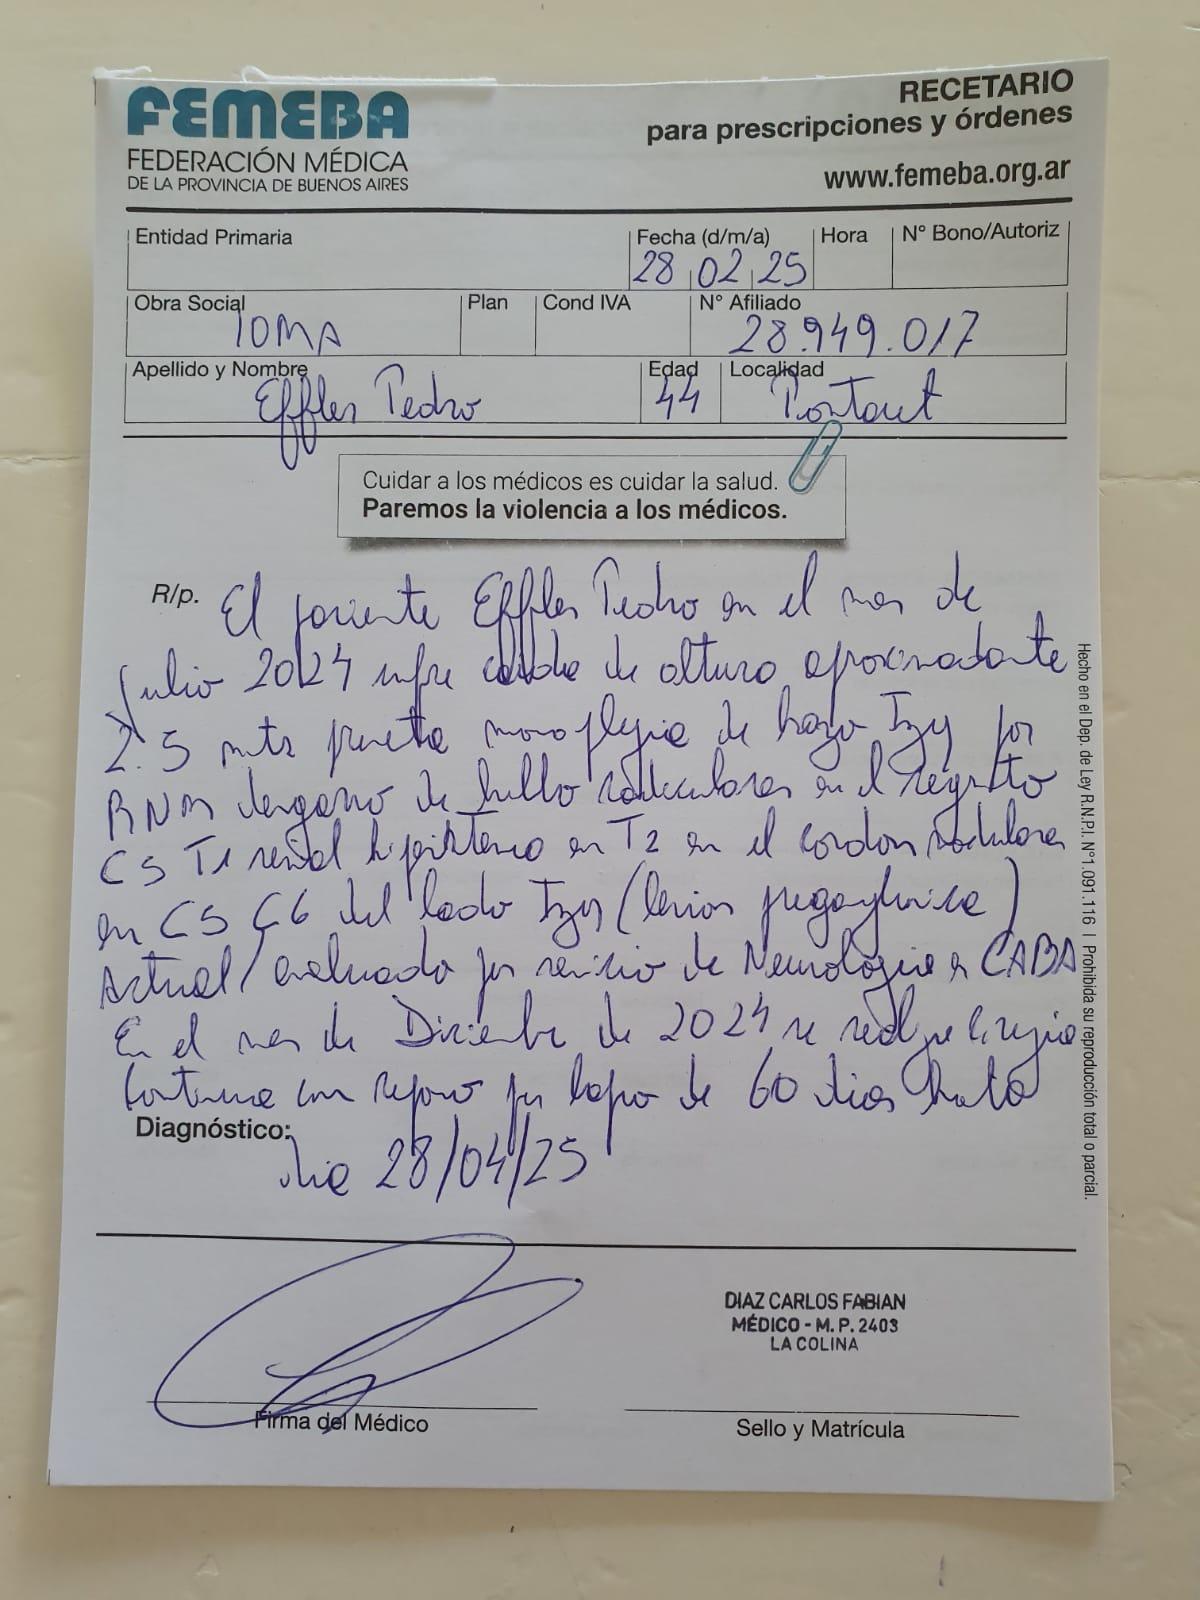 FEMEBA
FEDERACIÓN MÉDICA
DE LA PROVINCIA DE BUENOS AIRES
RECETARIO
para prescripciones y órdenes
www.femeba.org.ar
Entidad Primaria
Fecha (d/m/a)
Hora
N° Bono/Autoriz
28 02 25
Obra Social
Plan
Cond IVA
N° Afiliado
IOMA
28.949.017
Apellido y Nombre
Edad
Localidad
Effler Pedro
44
Pontaut
Cuidar a los médicos es cuidar la salud.
Paremos la violencia a los médicos.
R/p.
El paciente Effler Pedro en el mes de
Julio 2024 sufre caida de altura
2.5 mts presenta monoplegia de brazo Izq por
RNM desgarro de radiculares en el
C5 T1 señal en T2 en el cordon
en C5 C6 del lado Izq (lesion preganglionica)
Actual/ evaluado por servicio de Neurologia CABA
En el mes de Diciembre de 2024 se cirugia
Continua con reposo por lapso de 60 dias hasta
Diagnóstico:
dia 28/04/25
Firma del Médico
DIAZ CARLOS FABIAN
MÉDICO - M. P. 2403
LA COLINA
Sello y Matrícula
Hecho en el Dep. de Ley R.N.P.I. N°1.091.116 | Prohibida su reproducción total o parcial.